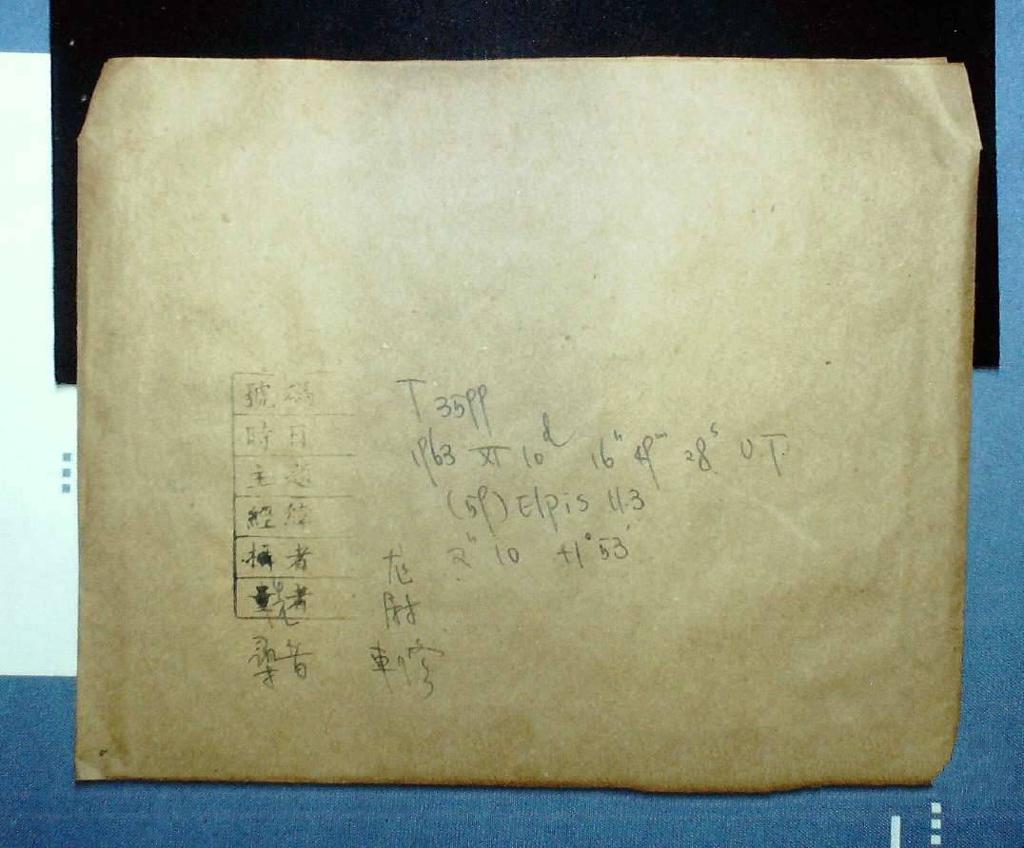 號碼 T 3599
時日 1963 XI 10d 16h 49m 28s UT
主題 (59) Elpis 11.3
經緯 2h 10 +1° 53'
攝者
量者